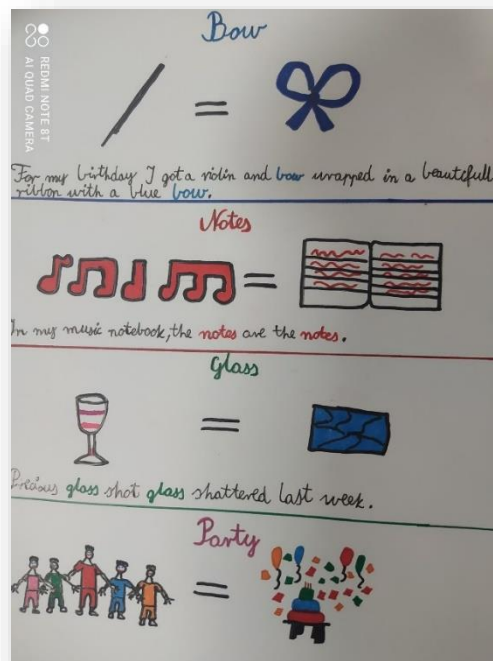 Bow
REDMI NOTE 8T
AI QUAD CAMERA
For my birthday I got a violin and bow wrapped in a beautifull
ribbon with a blue bow.
Notes
In my music notebook, the notes are the notes.
Glass
Precious glass shot glass shattered last week.
Party